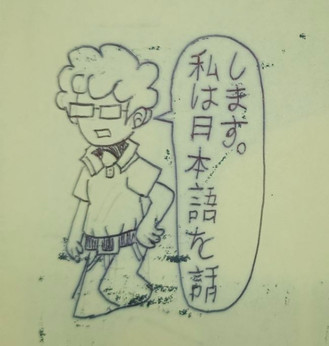 私は日本語を話
します。